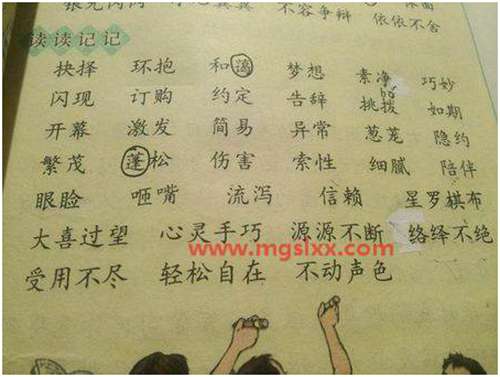 不容争辩 依依不舍
读读记记
抉择 环抱 和谐 梦想 素净 巧妙
闪现 订购 约定 告辞 挑拨 如期
开幕 激发 简易 异常 葱茏 隐约
繁茂 蓬松 伤害 索性 细腻 陪伴
眼睑 咂嘴 流泻 信赖 星罗棋布
大喜过望 心灵手巧 源源不断 络绎不绝
www.mgslxx.com
受用不尽 轻松自在 不动声色